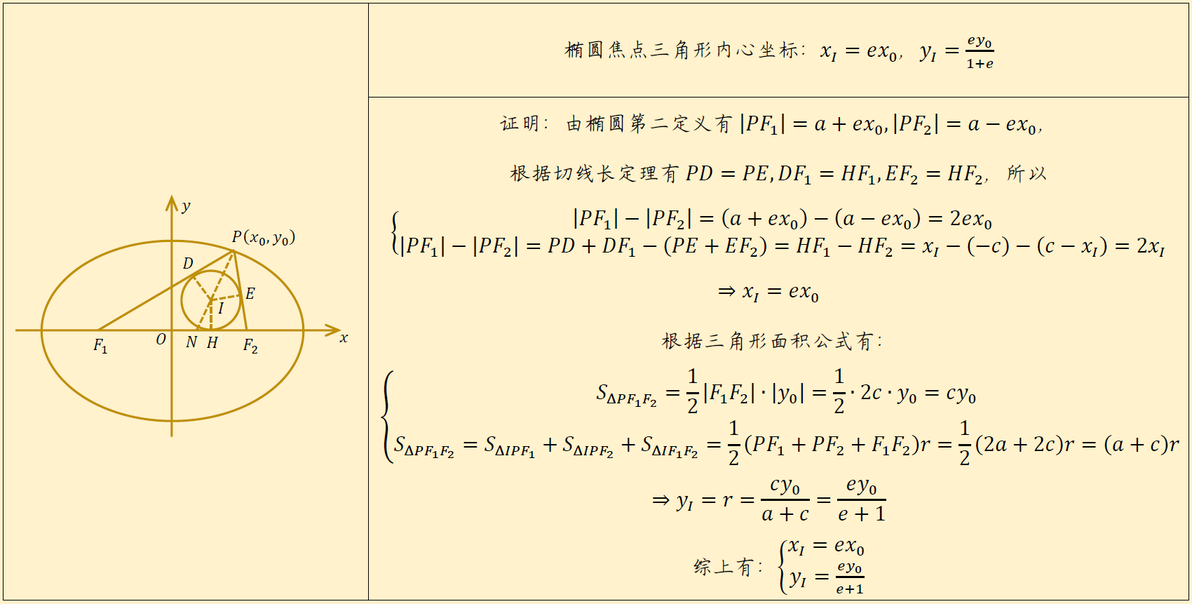 椭圆焦点三角形内心坐标：x_I = ex_0，y_I = \frac{ey_0}{1+e}
证明：由椭圆第二定义有 |PF_1| = a + ex_0, |PF_2| = a − ex_0，
根据切线长定理有 PD = PE, DF_1 = HF_1, EF_2 = HF_2，所以
|PF_1| − |PF_2| = (a + ex_0) − (a − ex_0) = 2ex_0
|PF_1| − |PF_2| = PD + DF_1 − (PE + EF_2) = HF_1 − HF_2 = x_I − (−c) − (c − x_I) = 2x_I
⇒ x_I = ex_0
根据三角形面积公式有：
S_{ΔPF_1F_2} = \frac{1}{2}|F_1F_2| · |y_0| = \frac{1}{2} · 2c · y_0 = cy_0
S_{ΔPF_1F_2} = S_{ΔIPF_1} + S_{ΔIPF_2} + S_{ΔIF_1F_2} = \frac{1}{2}(PF_1 + PF_2 + F_1F_2)r = \frac{1}{2}(2a + 2c)r = (a + c)r
⇒ y_I = r = \frac{cy_0}{a + c} = \frac{ey_0}{e + 1}
综上有：{ x_I = ex_0
y_I = \frac{ey_0}{e+1}
y
P(x_0, y_0)
D
E
I
F_1
O
N
H
F_2
x